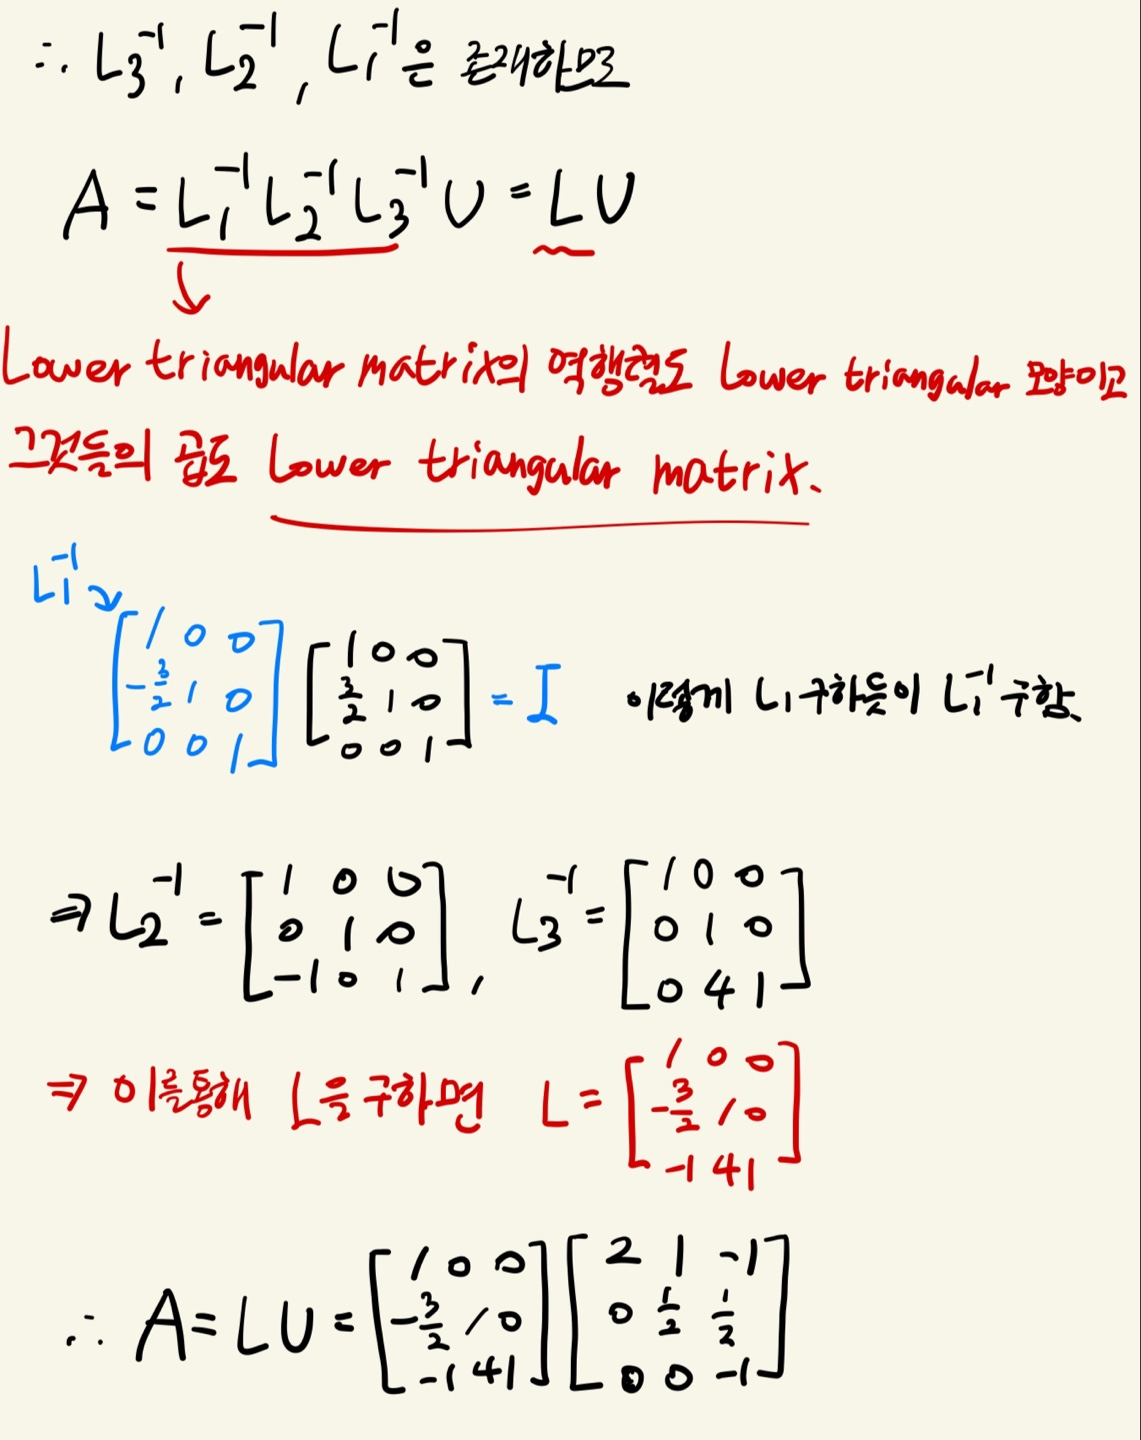 ∴ L₃⁻¹, L₂⁻¹, L₁⁻¹은 존재하므로
A = L₁⁻¹ L₂⁻¹ L₃⁻¹ U = LU
Lower triangular matrix의 역행렬도 Lower triangular 모양이고
그것들의 곱도 Lower triangular matrix.
L₁⁻¹ ↘
[1 0 0; -3/2 1 0; 0 0 1] [1 0 0; 3/2 1 0; 0 0 1] = I 이렇게 L₁구하듯이 L₁⁻¹구함.
⇒ L₂⁻¹ = [1 0 0; 0 1 0; -1 0 1], L₃⁻¹ = [1 0 0; 0 1 0; 0 4 1]
⇒ 이를통해 L을 구하면 L = [1 0 0; -3/2 1 0; -1 4 1]
∴ A = LU = [1 0 0; -3/2 1 0; -1 4 1] [2 1 -1; 0 1/2 1/2; 0 0 -1]